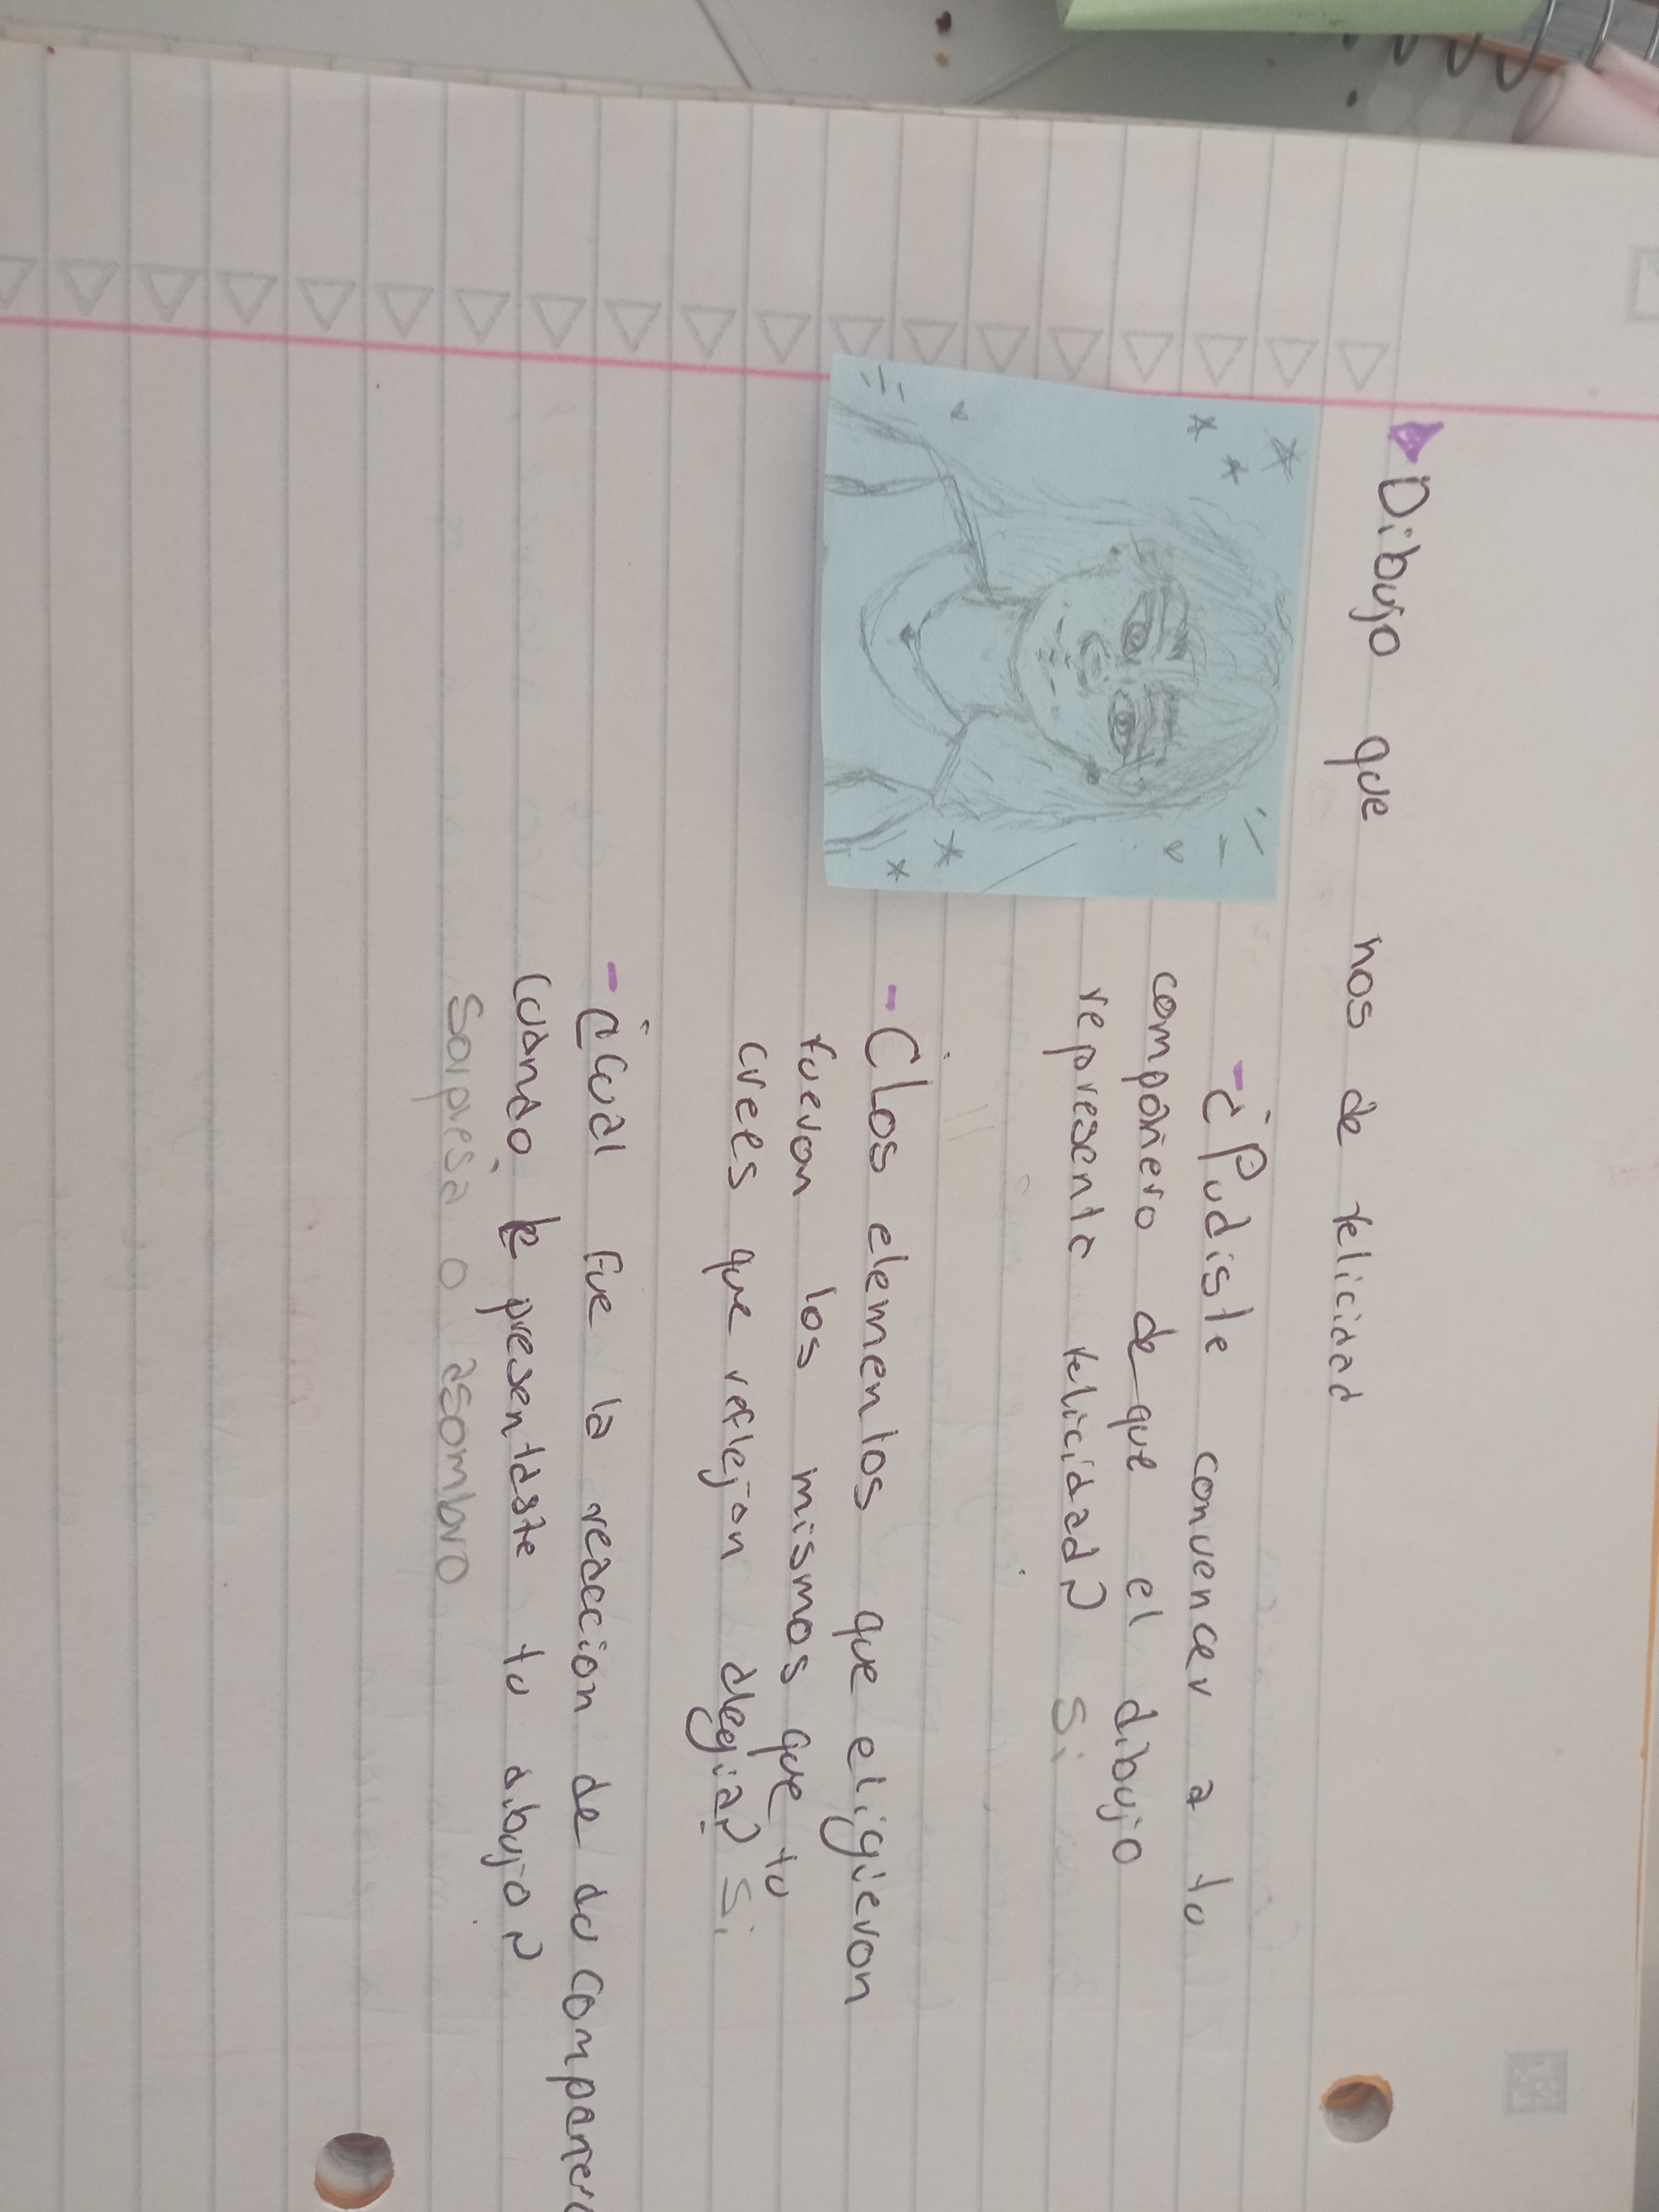 Dibujo que nos de felicidad
- ¿Pudiste convencer a tu
compañero de que el dibujo
represente felicidad? Si
- ¿los elementos que eligieron
fueron los mismos que tu
crees que reflejan alegia? Si
- ¿Cual fue la reaccion de du compañero
cuando le presentaste tu dibujo?
Sorpresa o asombro